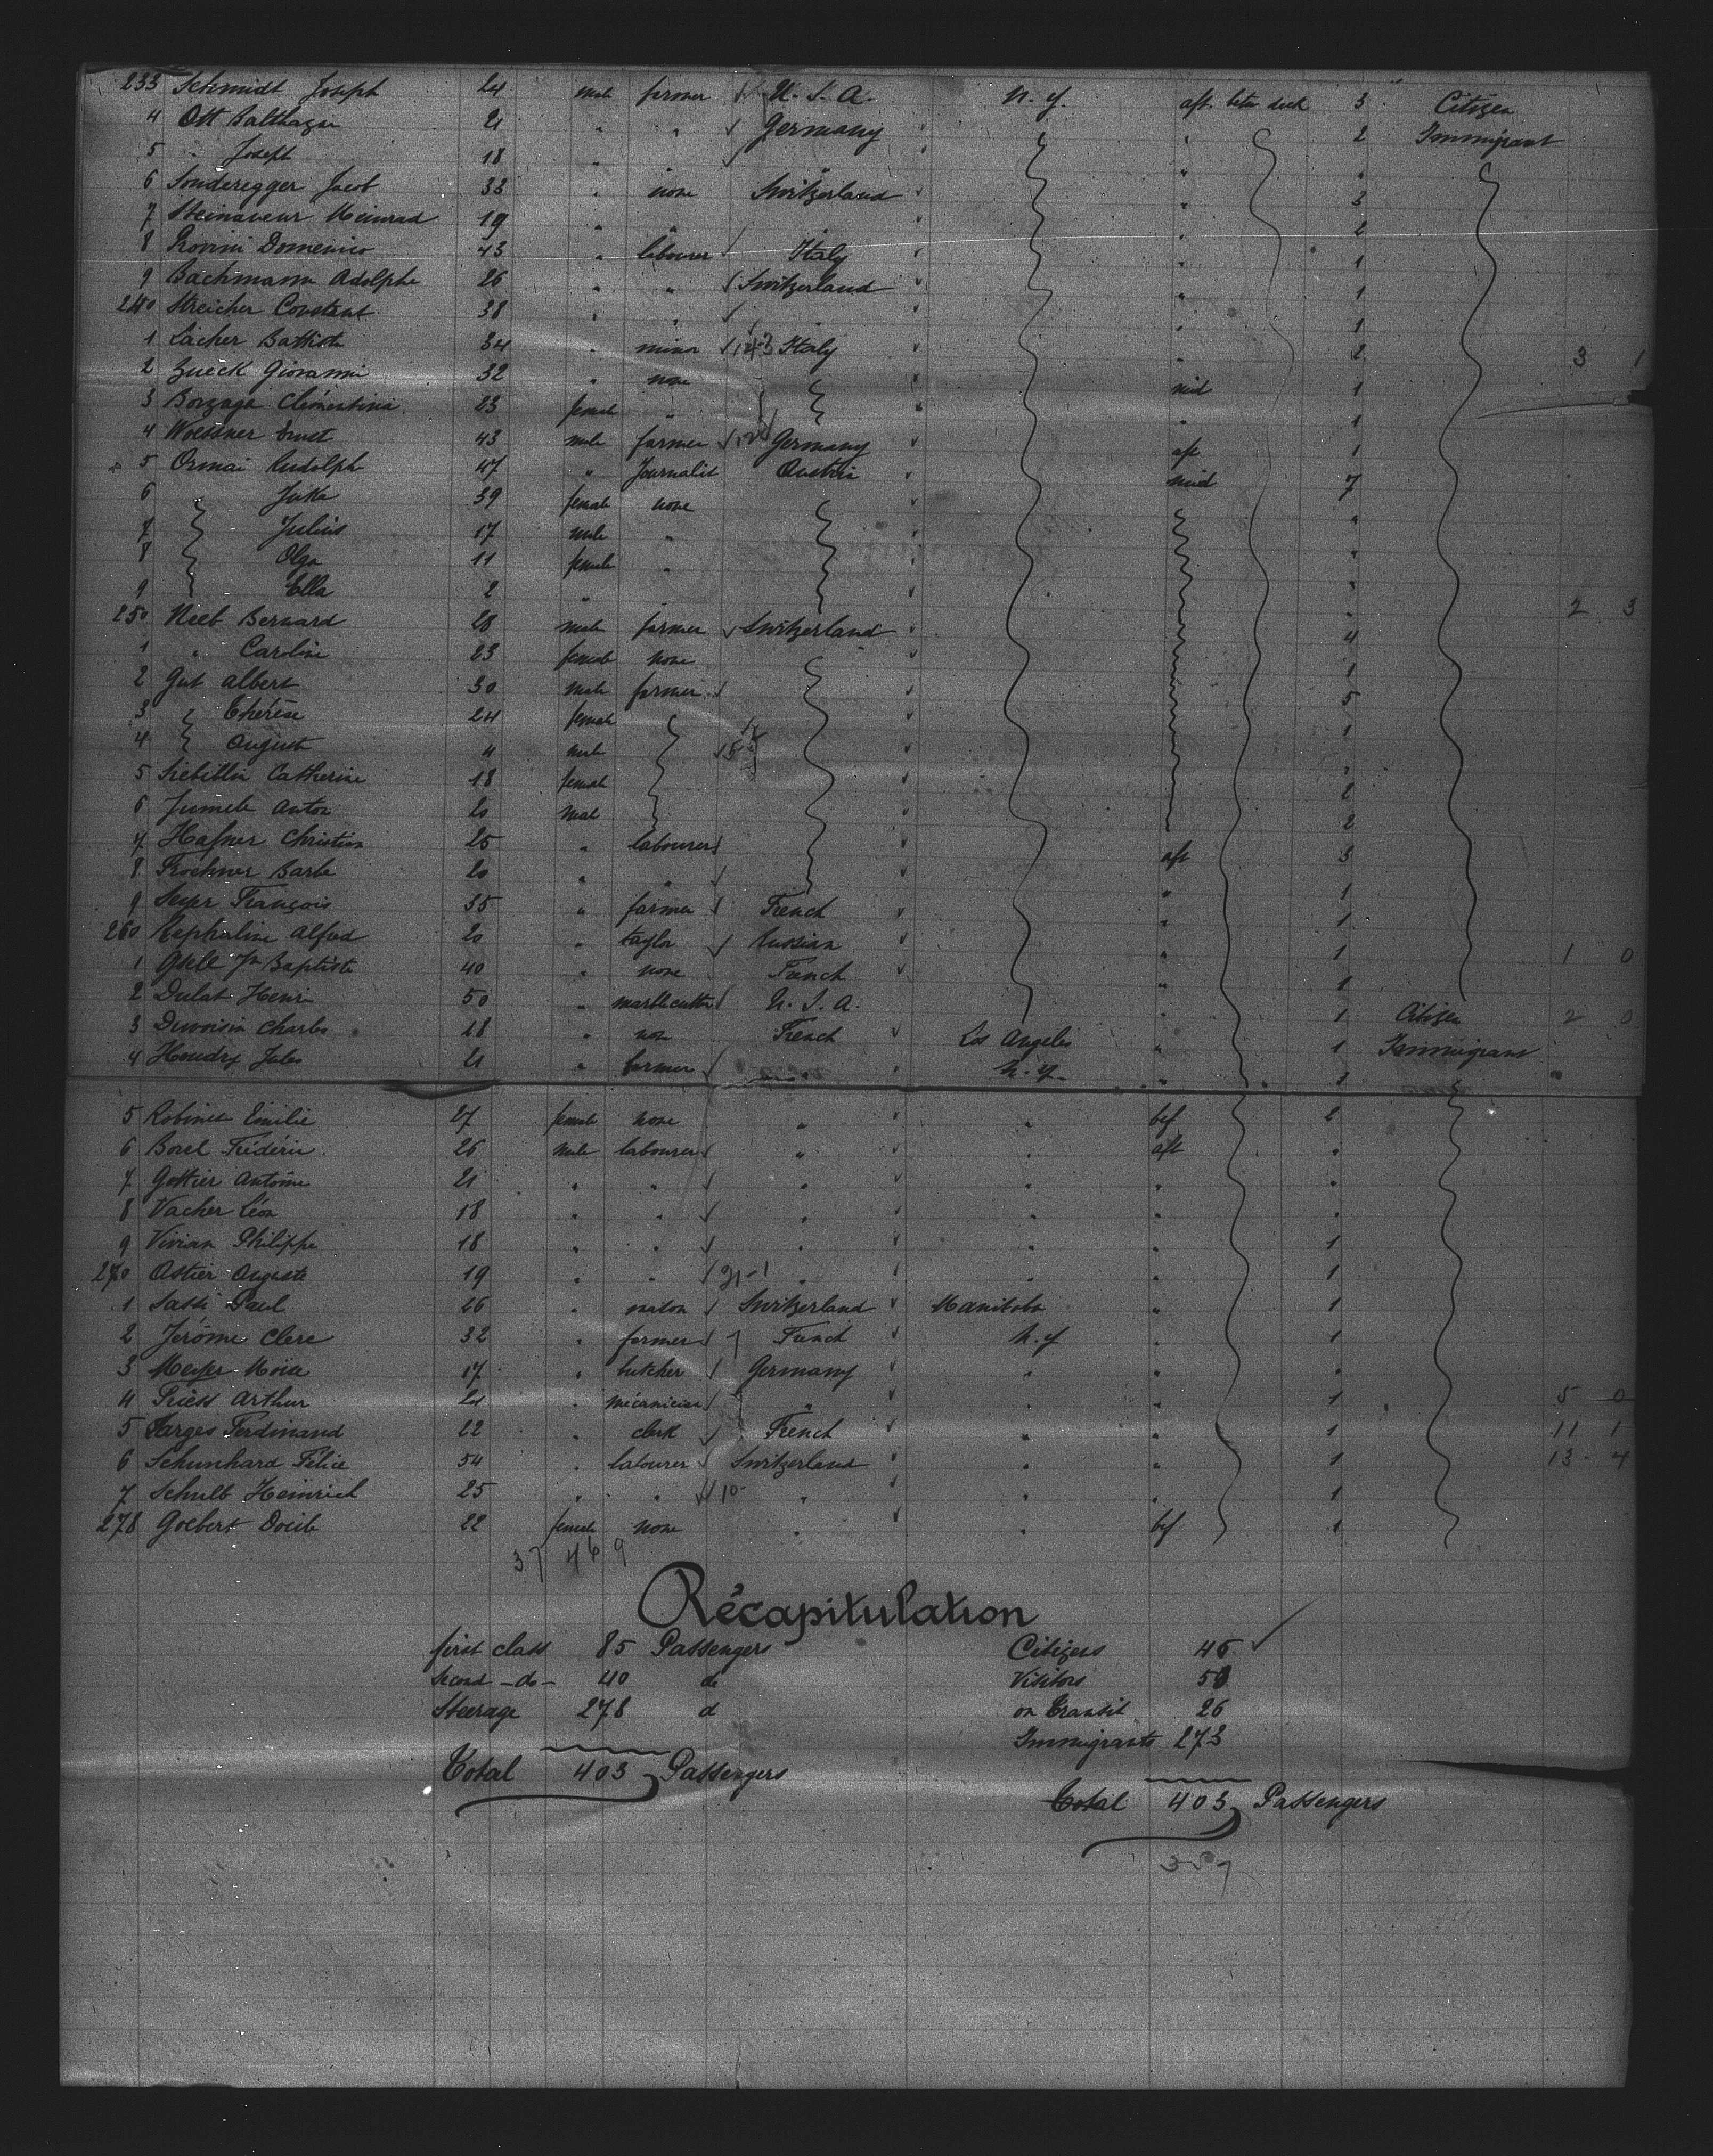 233 Schmidt Joseph 24 male farmer U. S. A. N. Y. aft. betw deck 3 Citizen
4 Ott Balthazar 21 " " Germany " 2 Immigrant
5 " Joseph 18 " " " "
6 Sonderegger Jacob 33 " none Switzerland " 3
7 Steinaveur Meinrad 19 " " " " 2
8 Rovini Domenico 43 " labourer Italy " 1
9 Bachmann Adolphe 26 " " Switzerland " 1
240 Streicher Constant 38 " " " " 1
1 Lacher Battista 34 " minor 143 Italy " 2 3 1
2 Zueck Giovanni 32 " none mid 1
3 Borzaga Clémentina 23 female " " 1
4 Woessner Ernst 43 male farmer Germany aft 1
5 Ormai Rudolph 47 " Journalist Austria mid 7
6 Juka 39 female none "
7 Julius 17 male " "
8 Olga 11 female " "
9 Ella 2 " " " 2 3
250 Neeb Bernard 28 male farmer Switzerland 4
1 " Caroline 23 female none 1
2 Gut Albert 30 male farmer 5
3 Thérèse 24 female 1
4 August 4 male "
5 Catherine 18 female 2
6 Anton 20 male 2
7 Hafner Christian 25 " labourer aft 3
8 Frockner Barbe 20 " " " 1
9 François 35 " farmer French " 1
260 Nephaline Alfred 20 " taylor Russian " 1 1 0
1 Jn Baptiste 40 " none French " 1
2 Dulat Henri 50 " marblecutter U. S. A. " 1 Citizen 2 0
3 Duvoisin Charles 28 " non French Los Angeles " 1 Immigrant
4 Houdry Jules 21 " farmer " N. Y. " 1 "
5 Robinet Emilie 27 female none " " bef 2
6 Borel Frédéric 26 male labourer " " aft "
7 Gottier Antoine 21 " " " " " "
8 Vacher Léon 18 " " " " " "
9 Vivian Philippe 18 " " " " " 1
270 Astier Auguste 19 " " 21-1 " " " 1
1 Sassi Paul 26 " mason Switzerland Manitoba " 1
2 Jérôme Clerc 32 " farmer French N. Y " 1
3 Meyer Moïse 17 " butcher Germany " " "
4 Priess Arthur 21 " mécanicien " " " 1 5 0
5 Farges Ferdinand 22 " clerk French " " 1 11 1
6 Schunhard Félice 54 " labourer Switzerland " " 1 13 4
7 Schulb Heinrich 25 " " 10 " " " 1
278 Goebert 22 female none " " bef 1
37 46 9
Récapitulation
first class 85 Passengers Citizens 46
Second -do- 40 do Visitors 58
Steerage 278 d on Transit 26
Immigrants 273
Total 403 Passengers
Total 403 Passengers
357